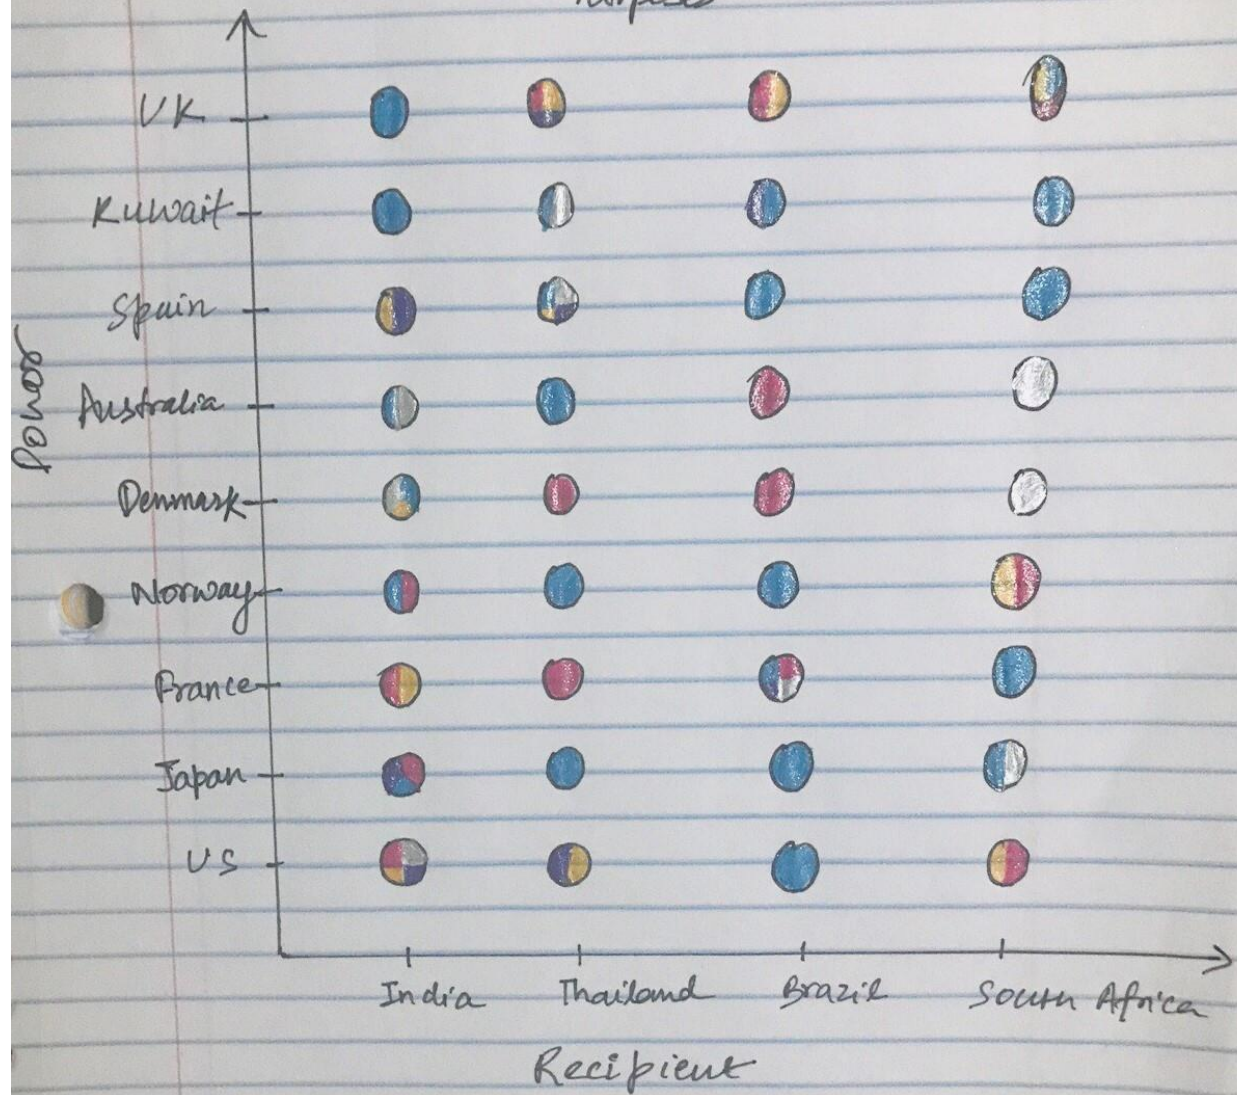 UK
Kuwait
Spain
Australia
Denmark
Norway
France
Japan
US
Donor
India Thailand Brazil South Africa
Recipient